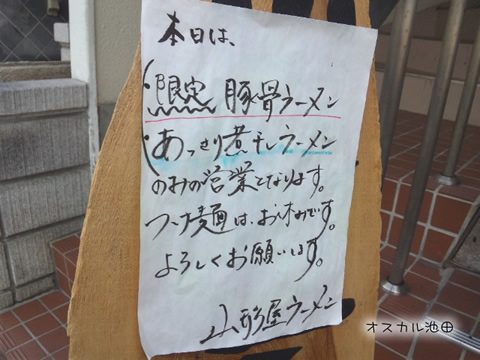 本日は、
限定 豚骨ラーメン
あっさり煮干しラーメン
のみの営業となります。
つけ麺は、お休みです。
よろしくお願いします。
山形屋ラーメン
オスカル池田